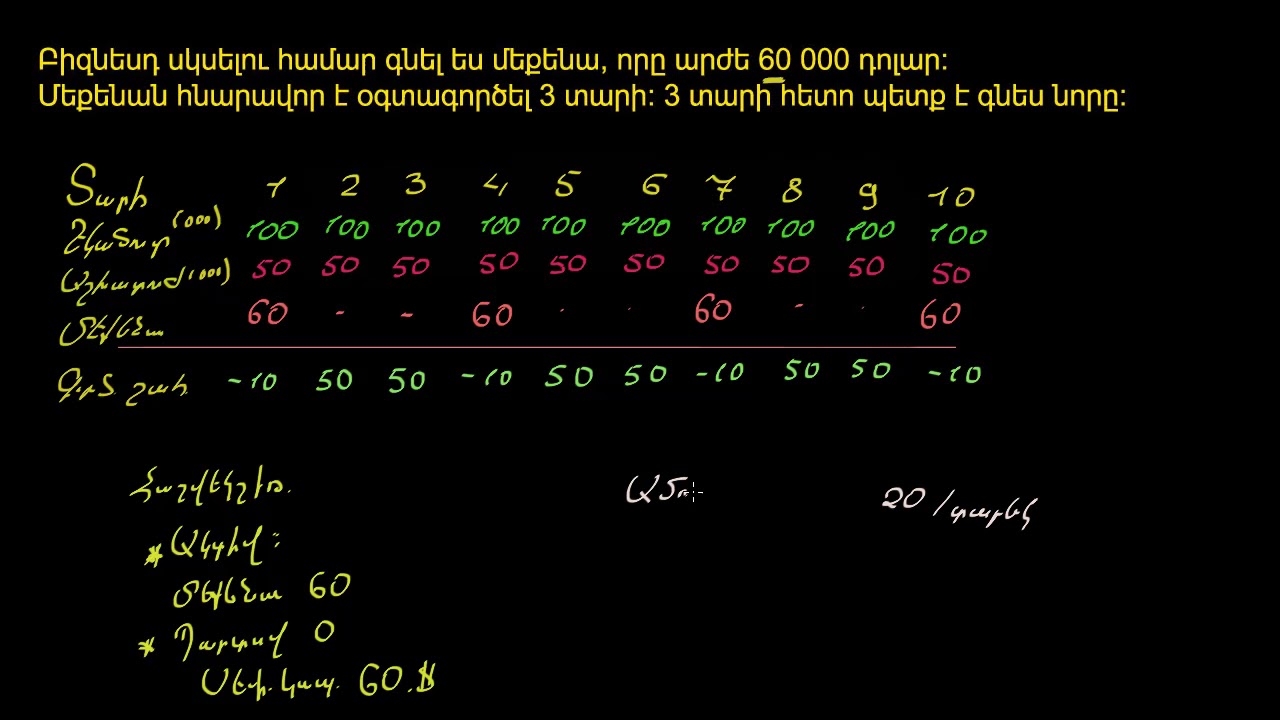 Բիզնեսդ սկսելու համար գնել ես մեքենա, որը արժե 60 000 դոլար:
Մեքենան հնարավոր է օգտագործել 3 տարի: 3 տարի հետո պետք է գնես նորը:
Տարի 1 2 3 4 5 6 7 8 9 10
Եկամուտ (000) 100 100 100 100 100 100 100 100 100 100
(000) 50 50 50 50 50 50 50 50 50 50
Մեքենա 60 - - 60 . . 60 - . 60
շահ. -10 50 50 -10 50 50 -10 50 50 -10
Հաշվեկշիռ. 20 /տարեկ
* Ակտիվ:
Մեքենա 60
* Պարտավ 0
Սեփ. կապ. 60.